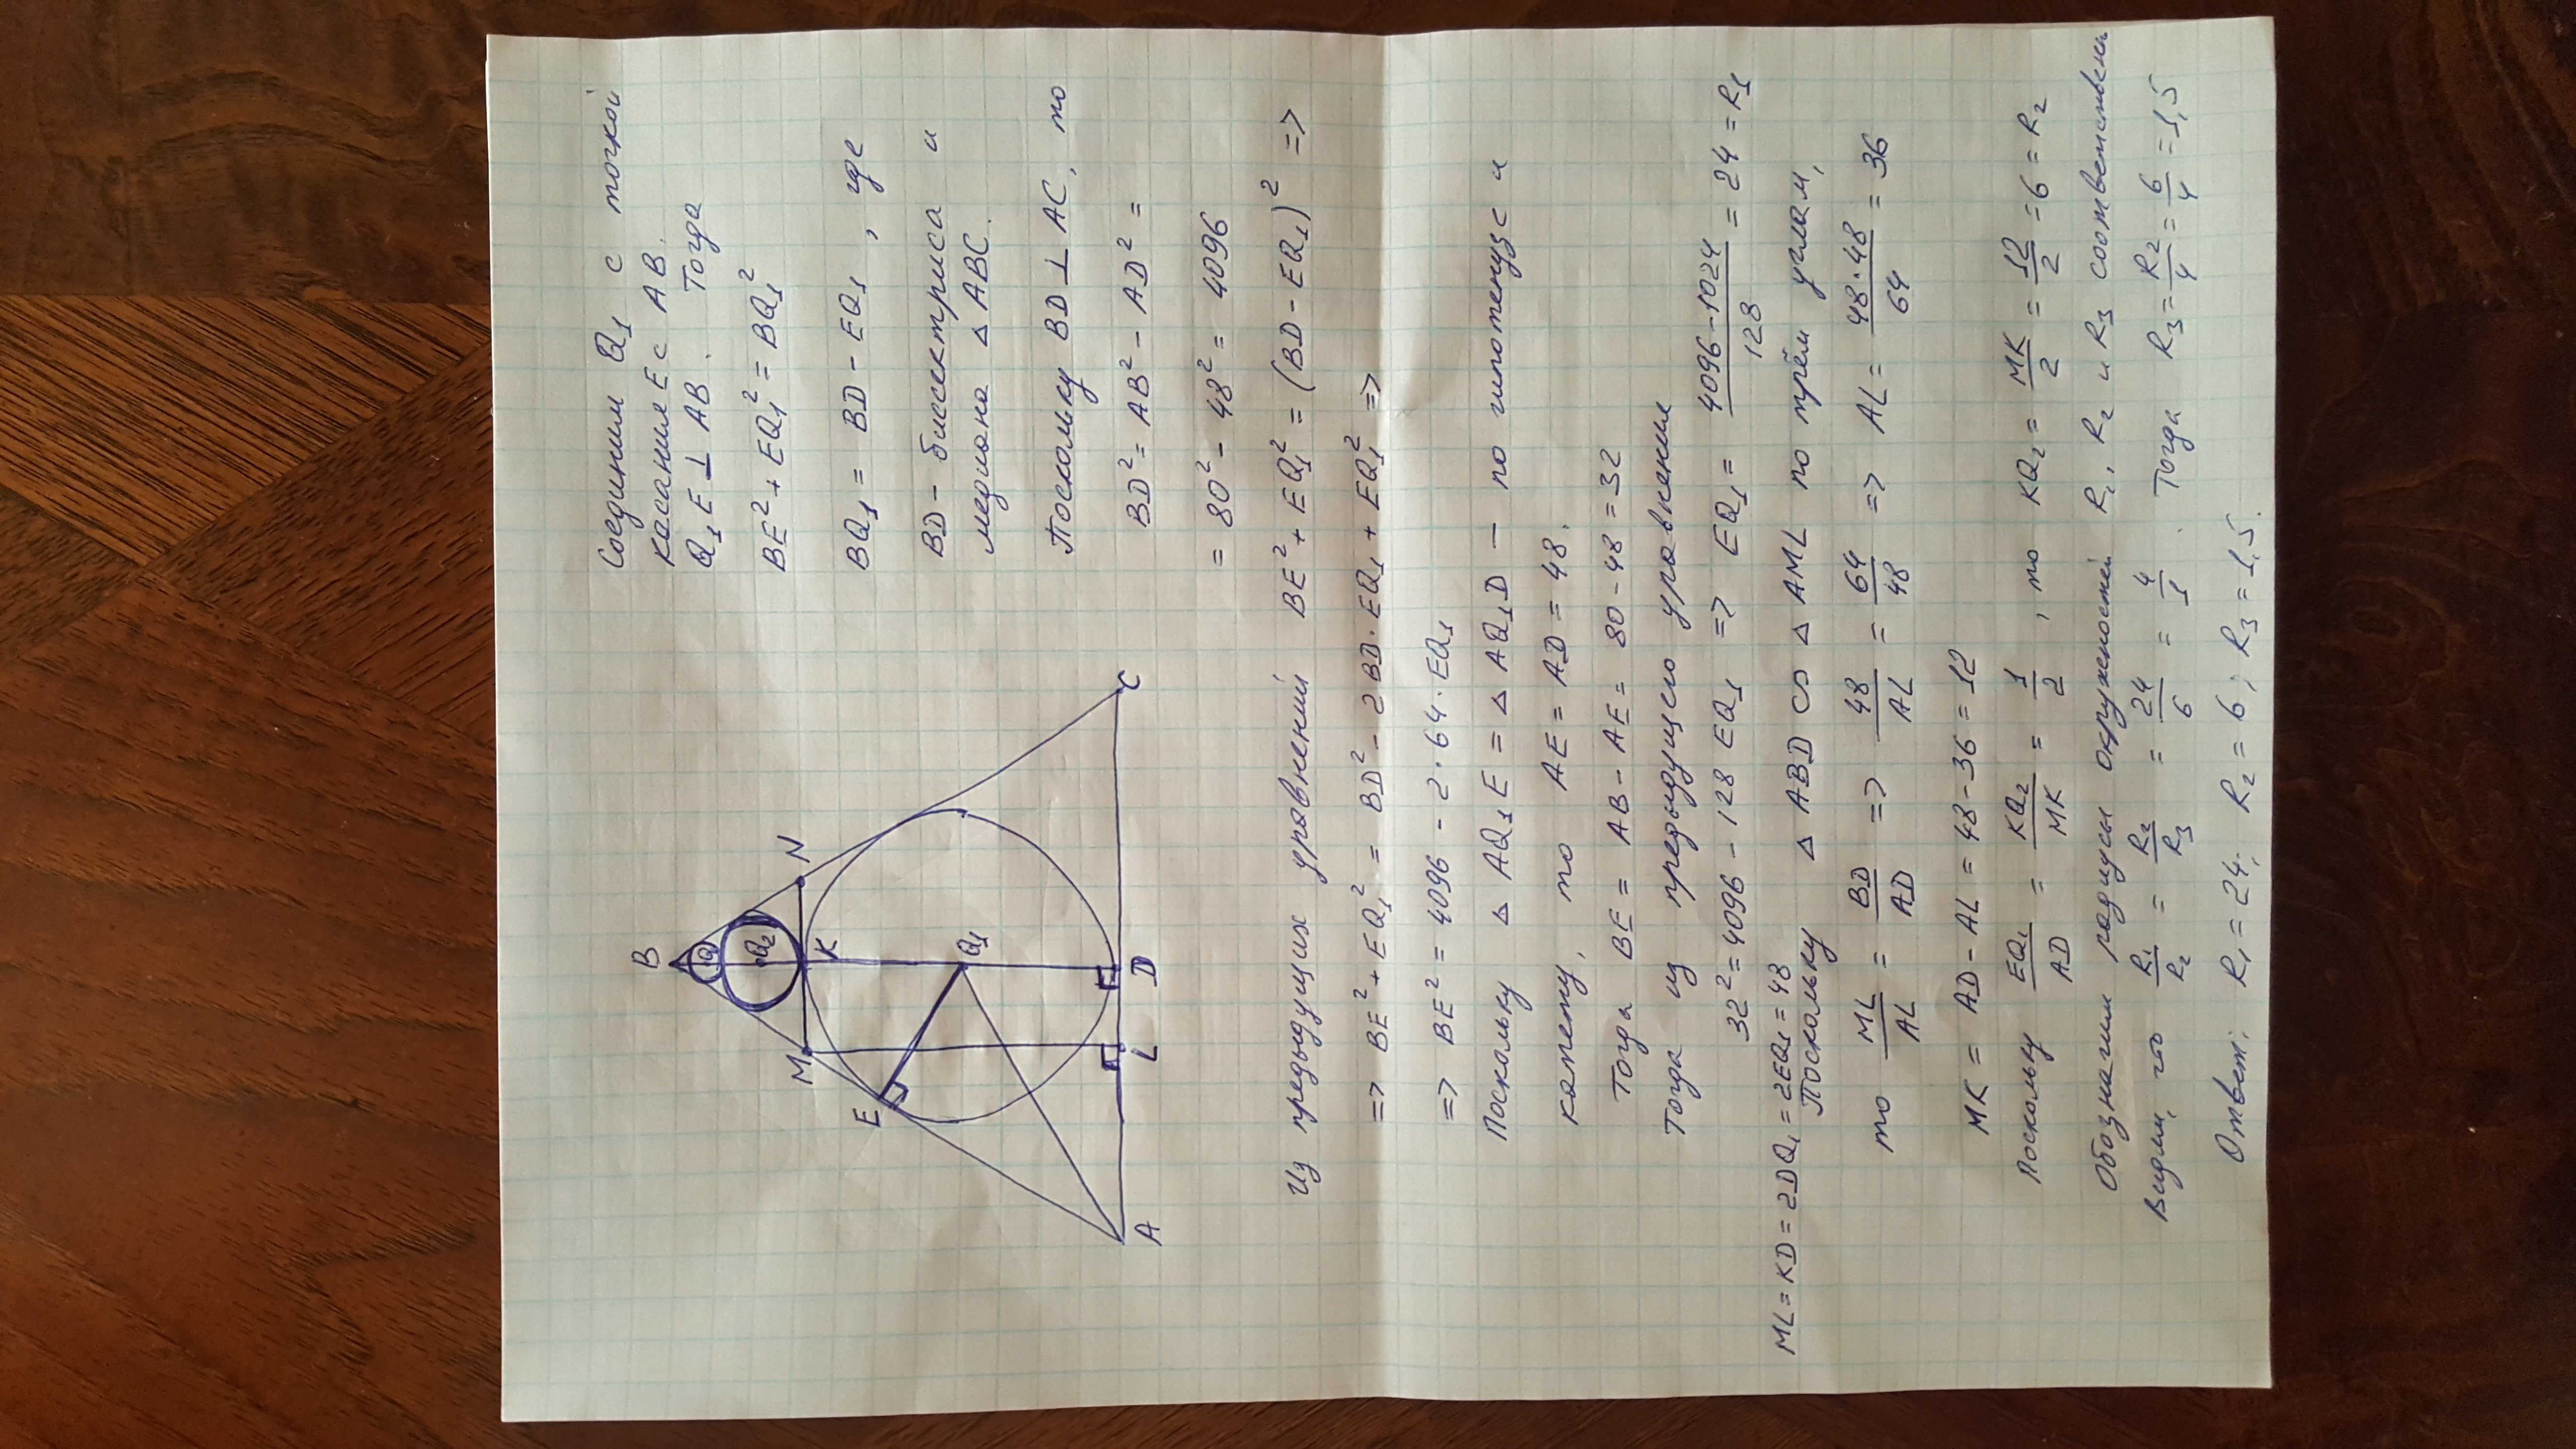 B
Q
Q₂
M
N
K
E
Q₁
A
L
D
C
Соединим Q₁ с точкой
касания E с AB.
Q₁E ⊥ AB. Тогда
BE² + EQ₁² = BQ₁²
BQ₁ = BD - EQ₁, где
BD - биссектриса и
медиана △ ABC.
Поскольку BD ⊥ AC, то
BD² = AB² - AD² =
= 80² - 48² = 4096
Из предыдущих уравнений BE² + EQ₁² = (BD - EQ₁)² =>
=> BE² + EQ₁² = BD² - 2 BD · EQ₁ + EQ₁² =>
=> BE² = 4096 - 2 · 64 · EQ₁
Поскольку △ AQ₁E = △ AQ₁D — по гипотенузе и
катету, то AE = AD = 48.
Тогда BE = AB - AE = 80 - 48 = 32
Тогда из предыдущего уравнения
32² = 4096 - 128 EQ₁ => EQ₁ = (4096 - 1024)/128 = 24 = R₁
ML = KD = 2DQ₁ = 2EQ₁ = 48
Поскольку △ ABD ∽ △ AML по трём углам,
то ML/AL = BD/AD => 48/AL = 64/48 => AL = 48·48/64 = 36
MK = AD - AL = 48 - 36 = 12
Поскольку EQ₁/AD = KQ₂/MK = 1/2, то KQ₂ = MK/2 = 12/2 = 6 = R₂
Обозначим радиусы окружностей R₁, R₂ и R₃ соответственно
Видим, что R₁/R₂ = R₂/R₃ = 24/6 = 4/1. Тогда R₃ = R₂/4 = 6/4 = 1,5
Ответ: R₁ = 24; R₂ = 6; R₃ = 1,5.